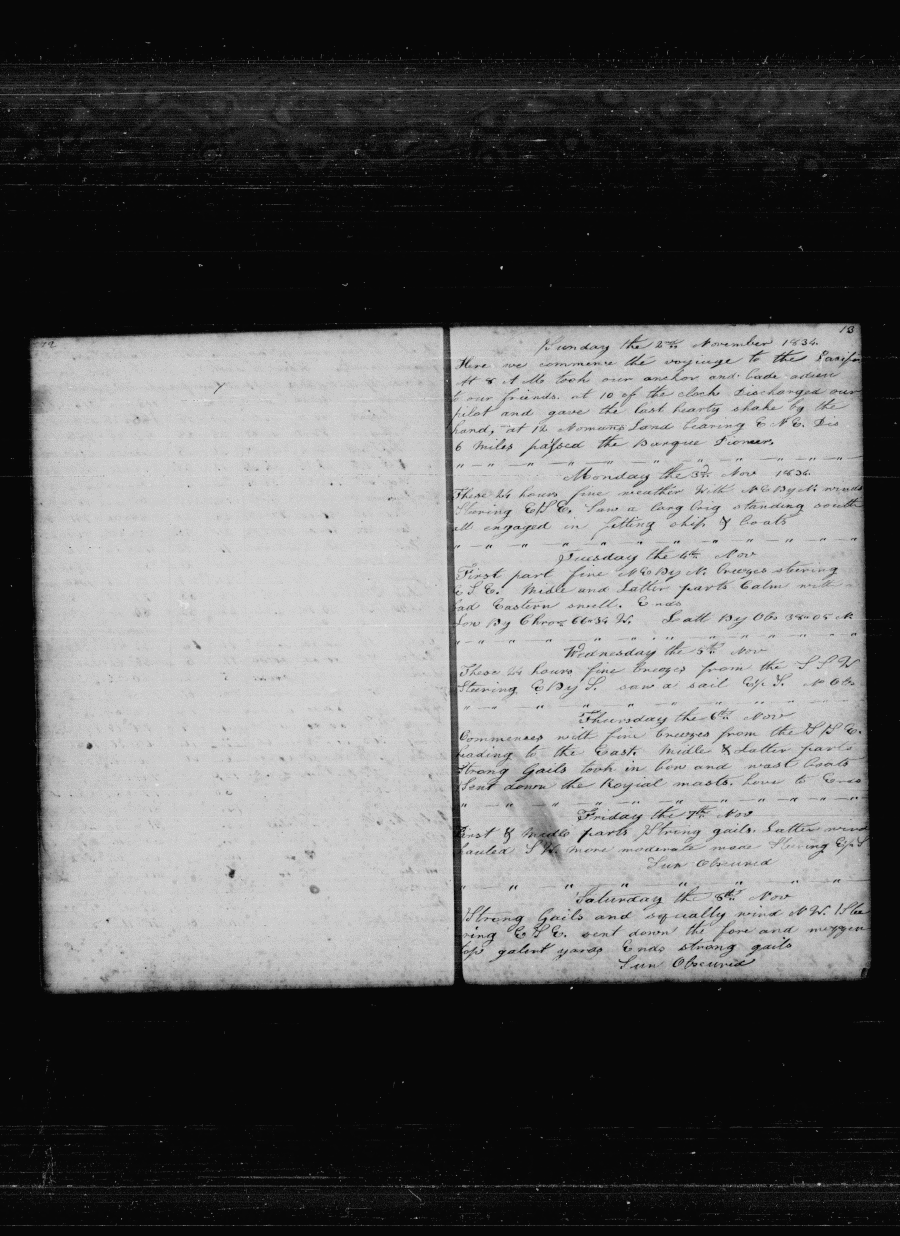 12
13
Sunday the 2nd November 1834
Here we commence the voyiuge to the Pasifi
At 8 A M took our anchor and bade adieu
t our friends. at 10 of the clock Discharged our
pilot and gave the last hearty shake by the
hand, at 12 Nomans Land bearing E N E. Dis
6 miles passed the Barque Pioneer.
Monday the 3d Nov 1834
These 24 hours fine weather With N E By N. winds
Stering E S E. Saw a larg brig standing south
all engaged in fitting ship & boats
Tuesday the 4th Nov
First part fine N E By N. breezes steering
E S E. Midle and Latter parts Calm with a
bad Eastern swell. Ends
Lon By Chro 66=34 W. Latt By Obs 38=05 N.
Wednesday the 5th Nov
These 24 hours fine breezes from the S S W
Steering E By S. saw a sail E/S. No Obs
Thursday the 6th Nov
Commences with fine breezes from the S S E.
heading to the East. Midle & Latter parts
Strong Gails took in bow and wast boats
Sent down the Royial masts. Love to Enos
Friday the 7th Nov
First & Midle parts Strong gails. Latter wind
hauled S W. more moderate made Steering E/S
Sun Obscured
Saturday the 8th Nov
Strong Gails and squally wind N W. Stee
ring E S E. sent down the fore and mizzen
top galent yards Ends strong gails
Sun Obscured